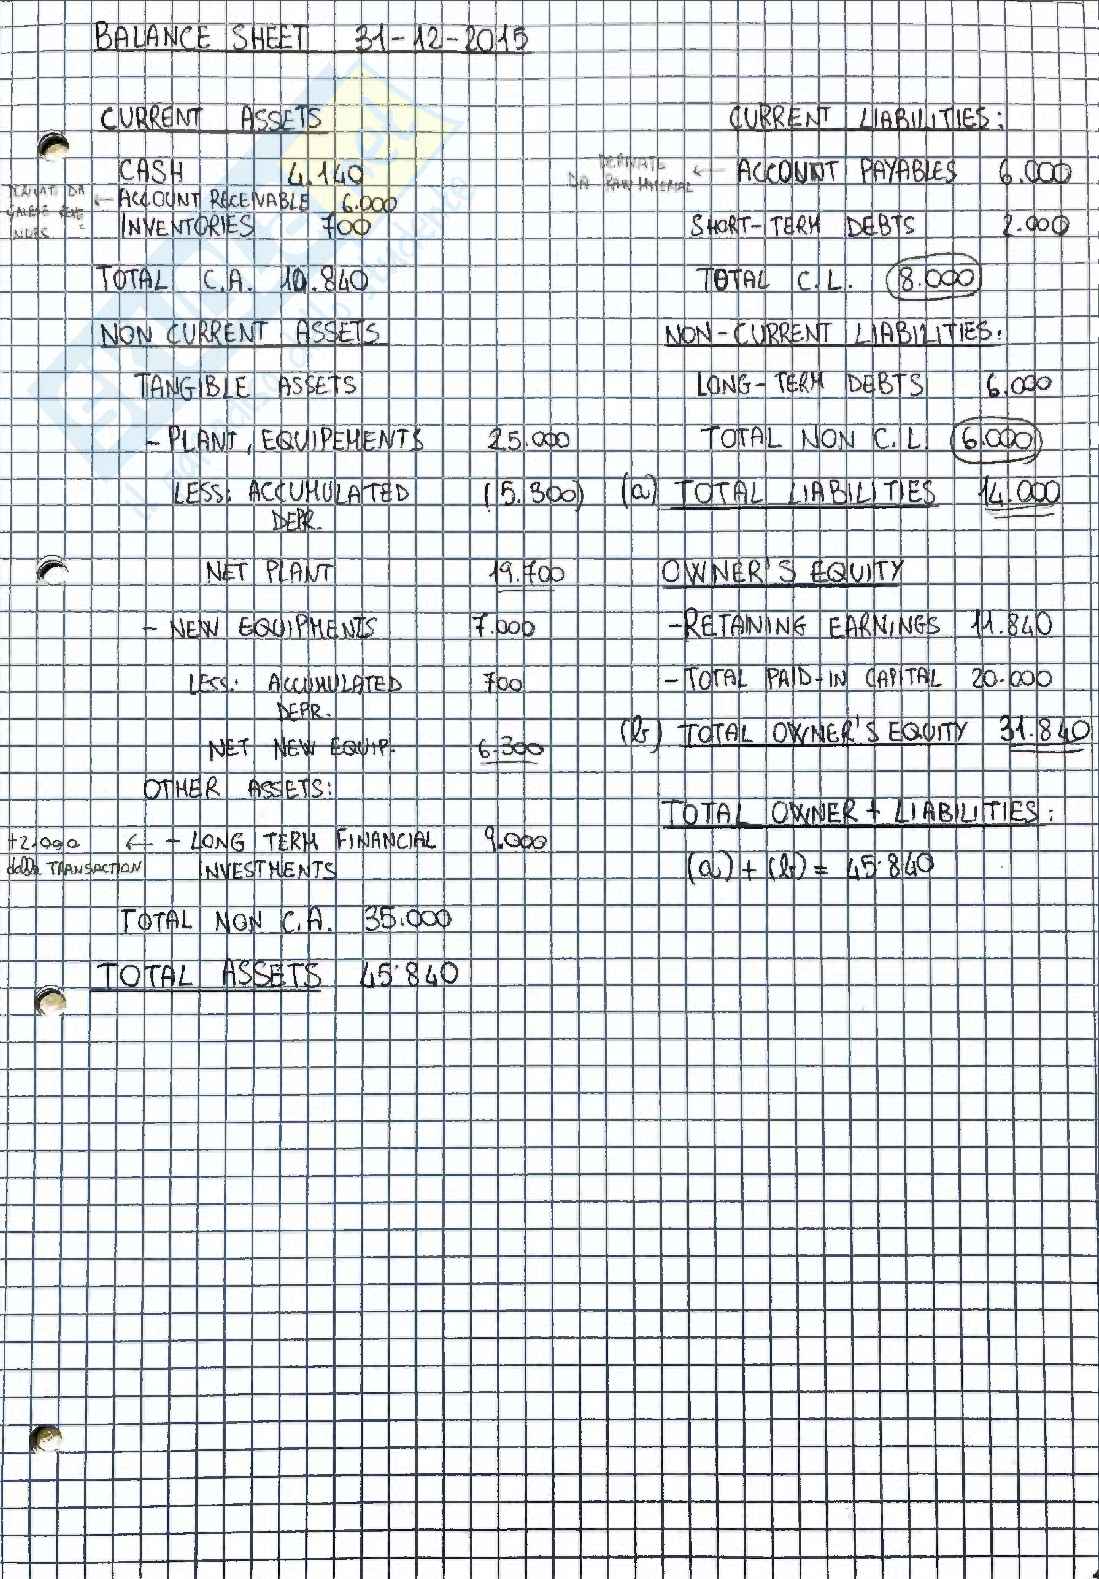 BALANCE SHEET 31-12-2015
CURRENT ASSETS
CASH 4.140
ACCOUNT RECEIVABLE 6.000
← DERIVATE DA
INVENTORIES 700
TOTAL C.A. 10.840
NON CURRENT ASSETS
TANGIBLE ASSETS
- PLANT, EQUIPEMENTS 25.000
LESS: ACCUMULATED (5.300)
DEPR.
NET PLANT 19.700
- NEW EQUIPMENTS 7.000
LESS: ACCUMULATED 700
DEPR.
NET NEW EQUIP. 6.300
OTHER ASSETS:
+2.000 ← - LONG TERM FINANCIAL 9.000
dalla TRANSACTION INVESTMENTS
TOTAL NON C.A. 35.000
TOTAL ASSETS 45.840
CURRENT LIABILITIES:
DERIVATE
DA RAW MATERIAL ← ACCOUNT PAYABLES 6.000
SHORT-TERM DEBTS 2.000
TOTAL C.L. 8.000
NON-CURRENT LIABILITIES:
LONG-TERM DEBTS 6.000
TOTAL NON C.L. 6.000
(a) TOTAL LIABILITIES 14.000
OWNER'S EQUITY
- RETAINING EARNINGS 11.840
- TOTAL PAID-IN CAPITAL 20.000
(b) TOTAL OWNER'S EQUITY 31.840
TOTAL OWNER + LIABILITIES:
(a) + (b) = 45.840